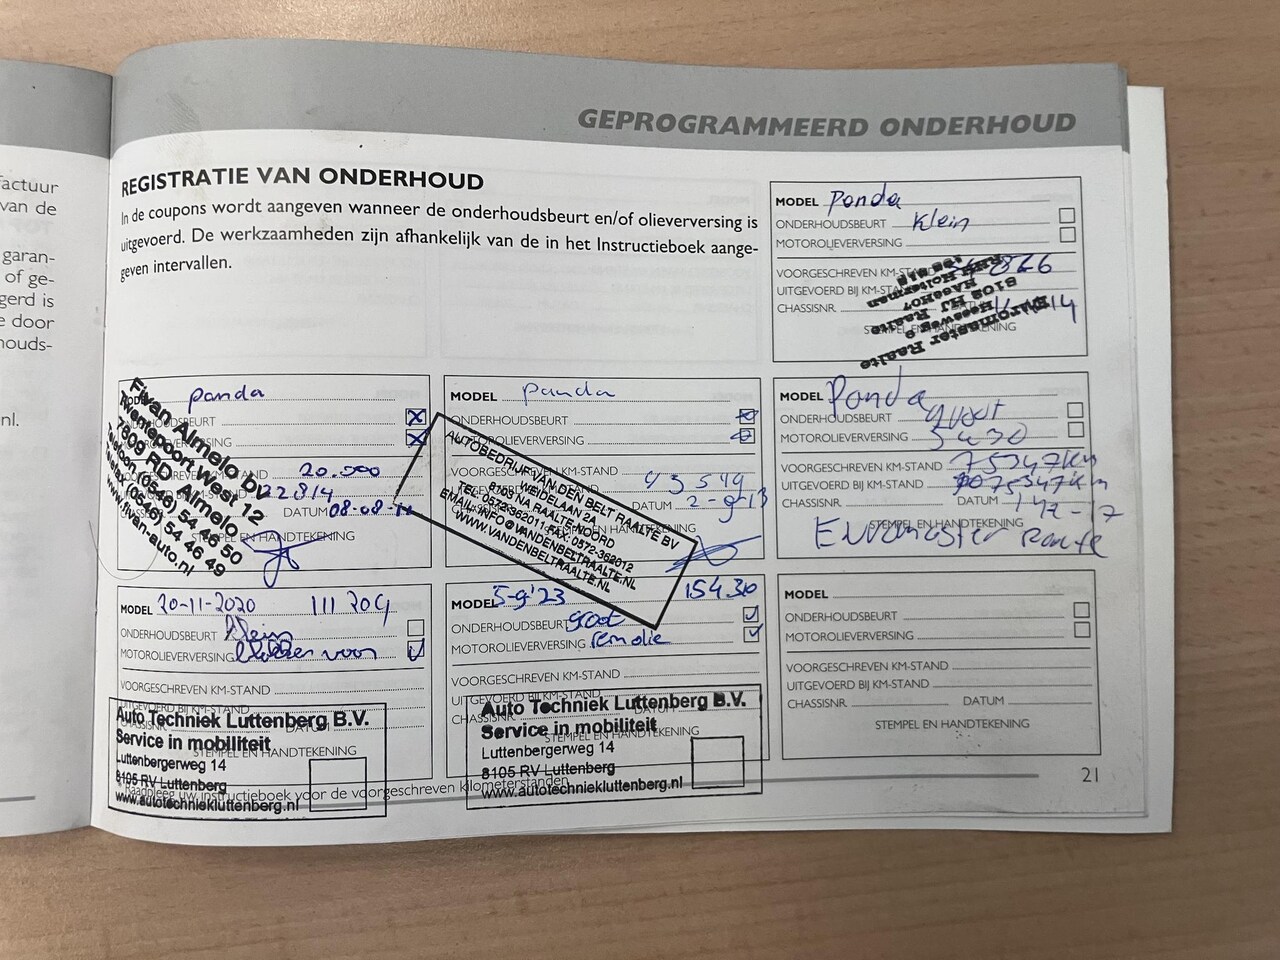 actuur
van de
garan-
of ge-
gerd is
e door
houds-
nl.
GEPROGRAMMEERD ONDERHOUD
REGISTRATIE VAN ONDERHOUD
In de coupons wordt aangeven wanneer de onderhoudsbeurt en/of olieverversing is
uitgevoerd. De werkzaamheden zijn afhankelijk van de in het Instructieboek aange-
geven intervallen.
MODEL Panda
ONDERHOUDSBEURT Klein
MOTOROLIEVERVERSING
VOORGESCHREVEN KM-STAND
UITGEVOERD BIJ KM
CHASSISNR. 14
STEMPEL EN HANDTEKENING
Euromaster Raalte
Heesweg 9
8102 HJ Raalte
panda
ONDERHOUDSBEURT X
MOTOROLIEVERVERSING X
VOORGESCHREVEN KM-STAND 20.500
22814
DATUM 08-08-11
STEMPEL EN HANDTEKENING
Fivan Almelo bv
Twentepoort West 12
7609 RD Almelo
Telefoon (0546) 54 46 50
Telefax (0546) 54 46 49
www.fivan-auto.nl
MODEL panda
ONDERHOUDSBEURT
MOTOROLIEVERVERSING
VOORGESCHREVEN KM-STAND
43549
DATUM 2-9-13
AUTOBEDRIJF VAN DEN BELT RAALTE BV
WEIDELAAN 2A
8103 NA RAALTE-NOORD
TEL. 0572-362011 FAX: 0572-362012
EMAIL: INFO@VANDENBELTRAALTE.NL
WWW.VANDENBELTRAALTE.NL
MODEL Panda
ONDERHOUDSBEURT groot
MOTOROLIEVERVERSING 5W30
VOORGESCHREVEN KM-STAND 75347km
UITGEVOERD BIJ KM-STAND
CHASSISNR. DATUM
STEMPEL EN HANDTEKENING
Euromaster Raalte
MODEL 20-11-2020 111 209
ONDERHOUDSBEURT Klein
MOTOROLIEVERVERSING blokken voor
VOORGESCHREVEN KM-STAND
UITGEVOERD BIJ KM-STAND
CHASSISNR. DATUM
STEMPEL EN HANDTEKENING
Auto Techniek Luttenberg B.V.
Service in mobiliteit
Luttenbergerweg 14
8105 RV Luttenberg
www.autotechniekluttenberg.nl
MODEL 5-9'23 154.30
ONDERHOUDSBEURT groot
MOTOROLIEVERVERSING remolie
VOORGESCHREVEN KM-STAND
UITGEVOERD BIJ KM-STAND
CHASSISNR. DATUM
STEMPEL EN HANDTEKENING
Auto Techniek Luttenberg B.V.
Service in mobiliteit
Luttenbergerweg 14
8105 RV Luttenberg
www.autotechniekluttenberg.nl
MODEL
ONDERHOUDSBEURT
MOTOROLIEVERVERSING
VOORGESCHREVEN KM-STAND
UITGEVOERD BIJ KM-STAND
CHASSISNR. DATUM
STEMPEL EN HANDTEKENING
Raadpleeg uw instructieboek voor de voorgeschreven kilometerstanden
21